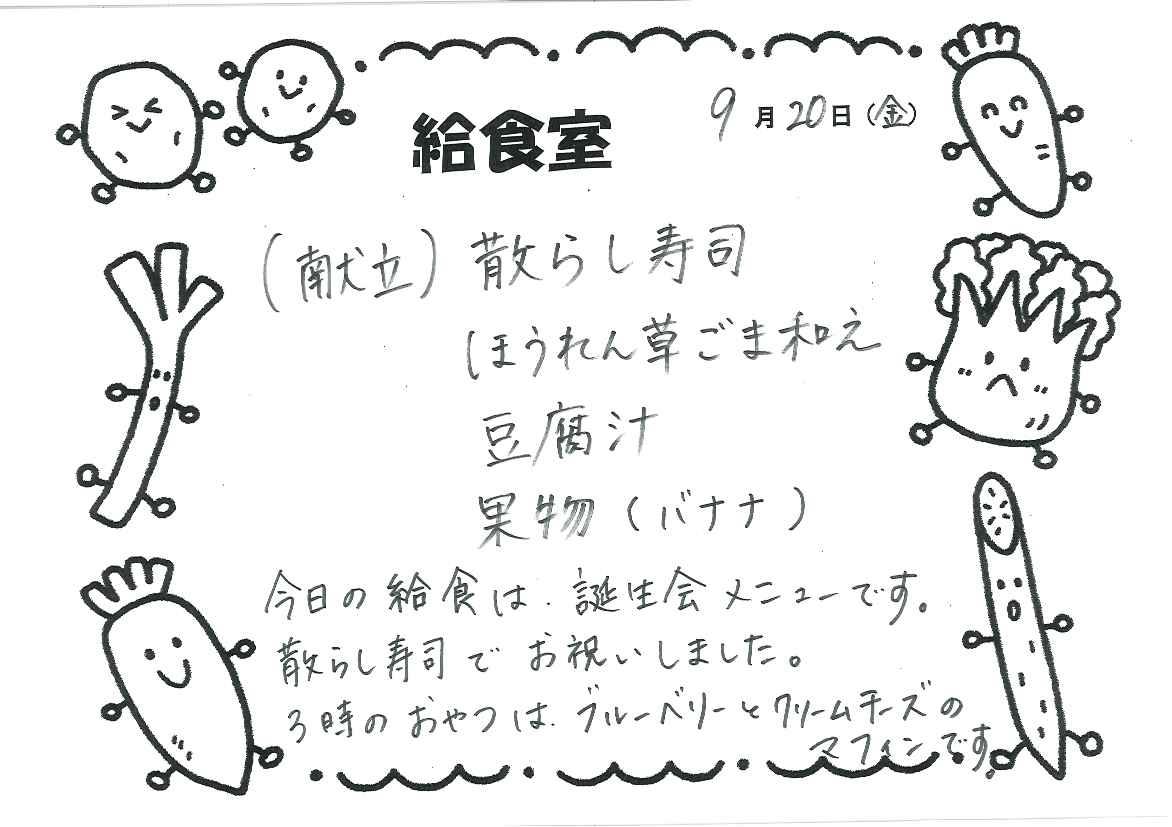 給食室
9月20日(金)
(献立)散らし寿司
ほうれん草ごま和え
豆腐汁
果物(バナナ)
今日の給食は、誕生会メニューです。
散らし寿司でお祝いしました。
3時のおやつは、ブルーベリーとクリームチーズの
マフィンです。